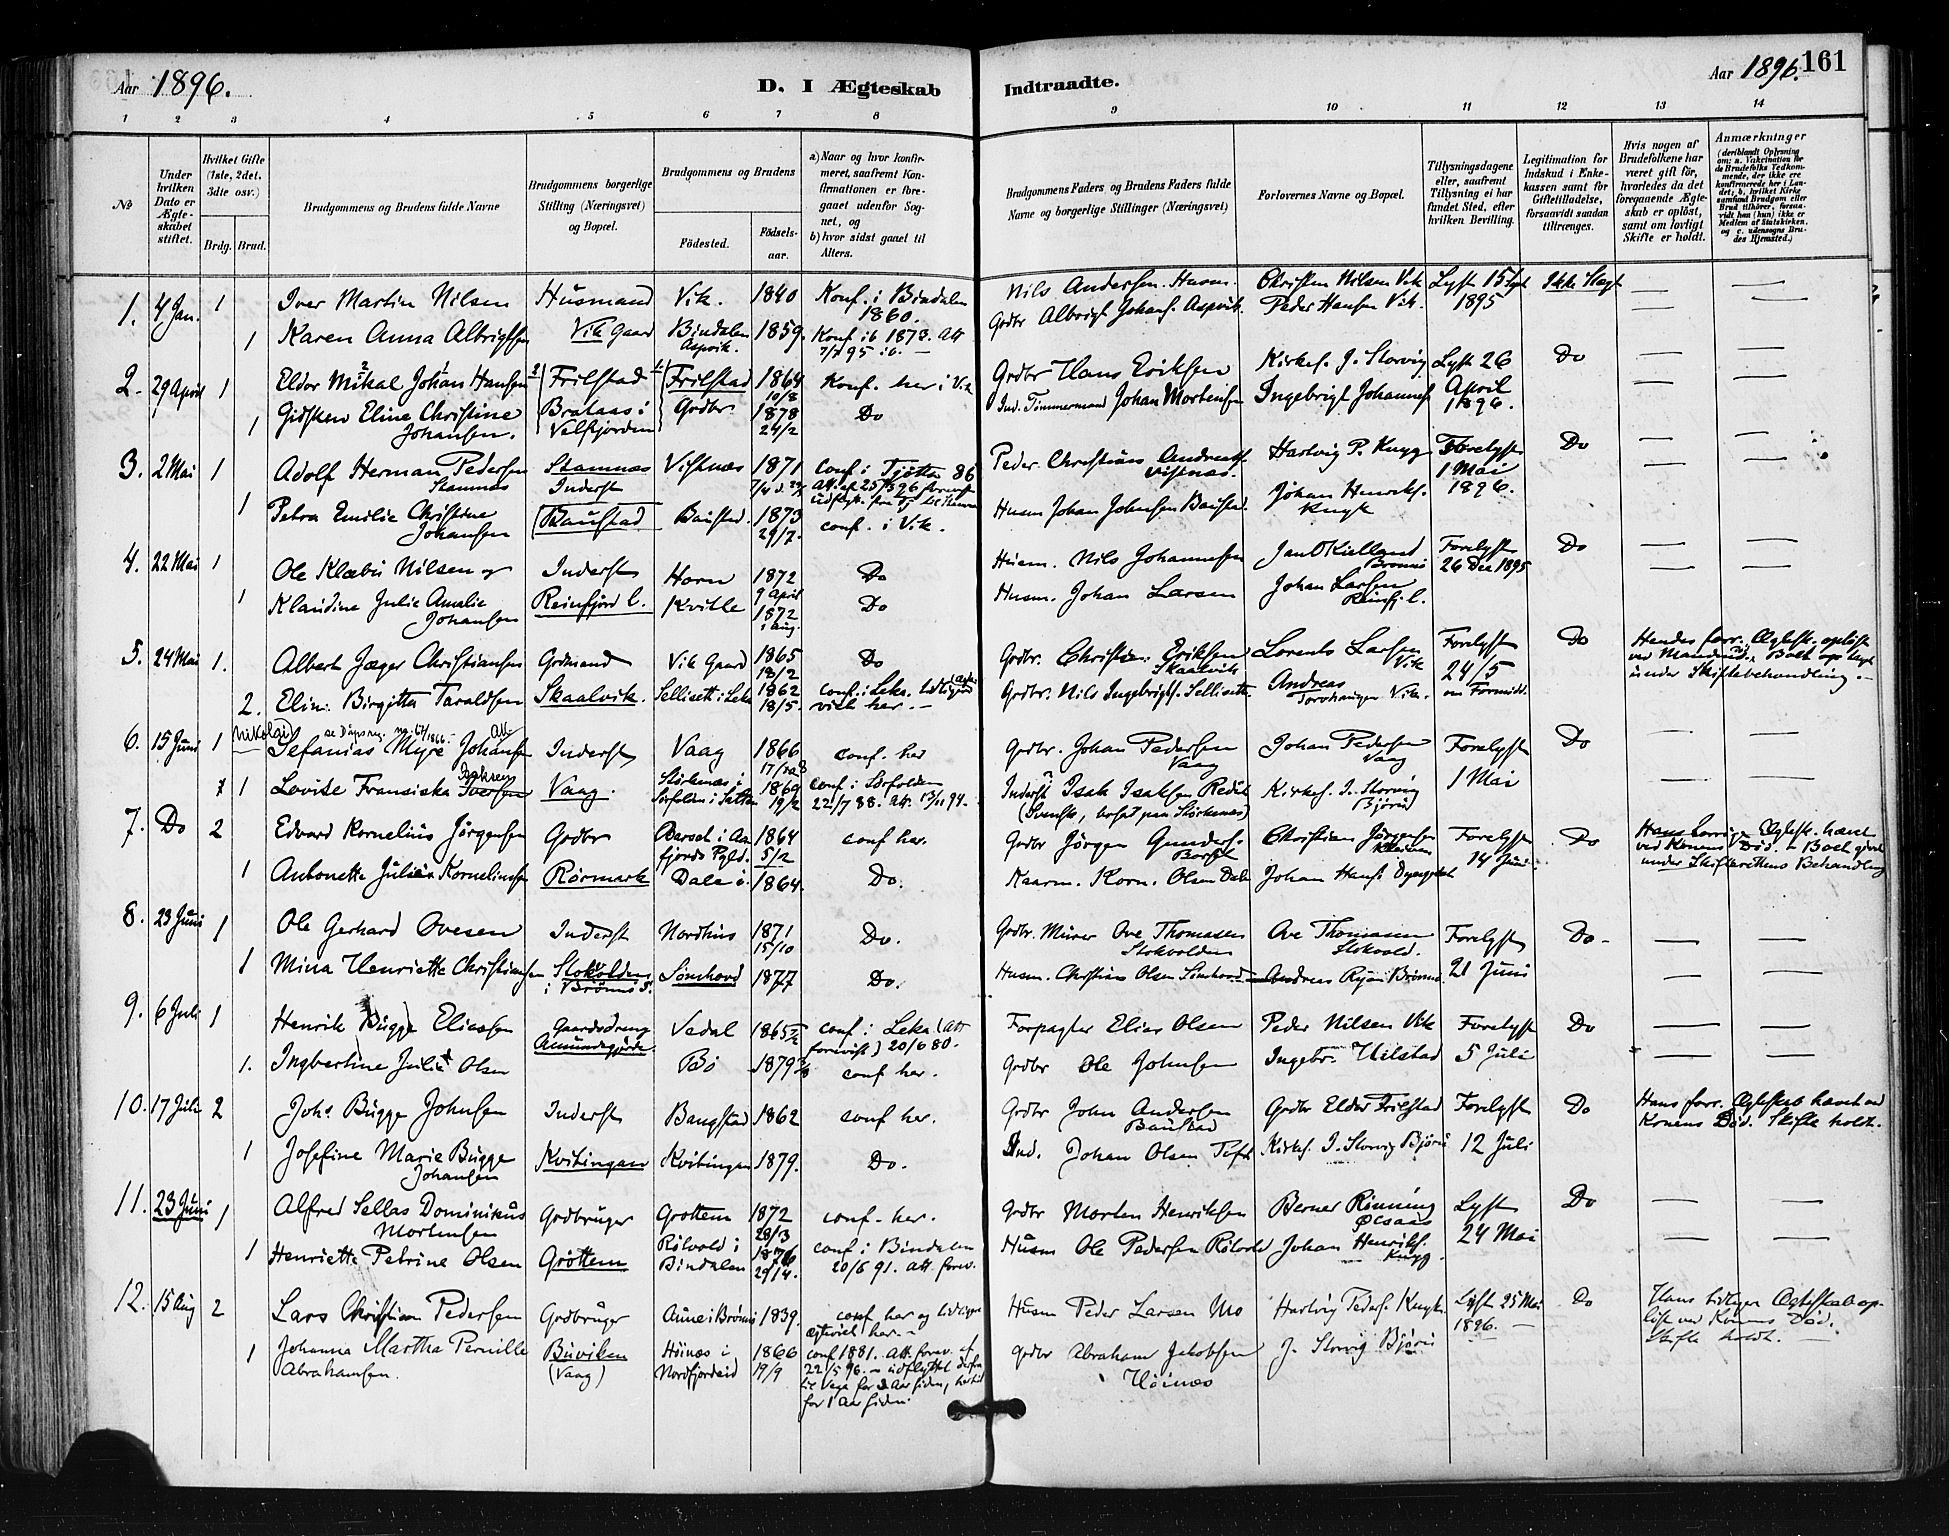 Aar 1896.
D. I Ægteskab
Indtraadte.
Aar 1896.
161
1 2 3 4 5 6 7 8 9 10 11 12 13 14
No
Under hvilken Dato er Ægteskabet stiftet.
Hvilket Gifte (1ste, 2det, 3dte osv.)
Brdg. Brud.
Brudgommens og Brudens fulde Navne
Brudgommens borgerlige Stilling (Næringsvei) og Bopæl.
Brudgommens og Brudens
Fødested.
Fødselsaar.
a) Naar og hvor konfirmeret, saafremt Konfirmationen er foregaaet udenfor Sognet, og
b) hvor sidst gaaet til Alters.
Brudgommens Faders og Brudens Faders fulde Navne og borgerlige Stillinger (Næringsvei)
Forlovernes Navne og Bopæl.
Tillysningsdagene eller, saafremt Tillysning ei har fundet Sted, efter hvilken Bevilling.
Legitimation for Indskud i Enkekassen samt for Giftetilladelse, forsaavidt saadan tiltrænges.
Hvis nogen af Brudefolkene har været gift før, hvorledes da det foregaaende Ægteskab er opløst, samt om lovligt Skifte er holdt.
Anmærkninger (deriblandt Oplysning om: a. Vakcination for de Brudefolks Vedkommende, der ikke ere konfirmerede her i Landet; b. hvilket Kirkesamfund Brudgom eller Brud tilhører, forsaavidt han (hun) ikke er Medlem af Statskirken, og c. udensogns Brudes Hjemsted.)
1. 4 Jan. 1 Iver Martin Nilsen Husmand Vik. 1840 Konf. i Bindalen 1860. Nils Andersen Husm. Christen Nilsen Vik Lyst 15 1895
1 Karen Anna Albrigtsen Vik Gaard Bindalen Aspvik. 1859. Konf. ib 1873. Att 95 Grdbr Albrigt Johans. Aspvik. Peder Hansen Vik.
2. 29 April 1 Eldor Mikal Johan Hansen Frilstad Frilstad 1864 10/8 Konf. her i Vik Grdbr Hans Eriksen Kirkes. J. Storvig Lyst 26 April 1896. Do
1 Gidsken Eline Christine Johansen. Brataas i Velfjorden Grdbr 1878 24/2 Do Ind. Timmermand Johan Mortensen Ingebrigt Johannes
3. 2 Mai 1 Adolf Herman Pedersen Stamnæs Stamnæs Inderst Vistnæs 1871 conf. i Tjøtta 86 Peder Christians Andreas Vistnæs. Hartvig P. Knyg Forelyst 1 Mai 1896. Do
1 Petra Emilie Christine Johansen Baustad Baustad. 1873 29/7. conf. i Vik. Husm Johan Johnsen Baustad. Johan Henriks. Knyg
4. 22 Mai 1 Ole Klæbu Nilsen og Inderst Horn 1872 9 April Do Husm. Nils Johannesen Jan O Kielland Brønnø Forelyst 26 Dec 1895 Do
1 Klaudine Julie Amalie Johansen Reinfjord l. Kville 1872 Aug. Do Husm. Johan Larsen Johan Larsen Reinfj. l.
5. 24 Mai 1. Albert Jæger Christiansen Grdmand Vik Gaard 1865 18/2 Do Grdbr. Christian Eriksen Skaalvik Lorents Larsen Vik Forelyst 24/5 Do Hendes forr. Ægtesk. opløst ved Mandens D. Boet op tagt under Skiftebehandling.
2. Elin Birgitta Taraldsen Skaalvik. Sellisett i Leka 1862 18/5. conf. i Leka. her. Grdbr. Nils Ingebrigts. Sellisett Andreas Torvhaugen Vik. Formidd.
6. 15 Juni 1 Nikolai Sefanias Myre Johansen Inderst Vaag 1866 conf. her Grdbr. Johan Pedersen Vaag Johan Pedersen Vaag Forelyst 1 Mai Do
1 Lovise Fransiska Iversen Vaag. Størkenæs i Sørfolden i Salten 1869 19/2 conf i Sørfolden 22/7 88. Att. 13/11 94. Inderst Isak Isaksen (Svensk, bosat paa Størkenæs) Kirkes. J. Storvig Bjørn
7. Do 2 Edvard Kornelius Jørgensen Grdbr 1864 5/2 conf her. Grdbr Jørgen Gunders. Christian Jørgensen Forelyst 14 Juni Do Hans forrige Ægtesk. hævet ved Konens Død. Boet under Skifterettens Behandling
1 Antonette Julie Korneliussen Rørmark Dale 1864. Do. Kaarm. Korn. Olsen Dale Johan Hans.
8. 23 Juni 1 Ole Gerhard Ovesen Inderst Nordhus 1871 15/10 Do. Grdbr. Murer Ove Thomasen Stokvolden Ove Thomasen Stokvold. Forelyst 21 Juni Do
1 Mina Henriette Christiansen i Brønnø S. Sømhovd 1877 Do. Husm. Christians Olsen Sømhovd Andreas Brønnø.
9. 6 Juli 1 Henrik Bugge Eliassen Gaardsdreng Amundsgjerde. Vedal 1865 conf. i Leka (Att forevist) 20/6 80. Forpagter Elias Olsen Peder Nilsen Vik Forelyst 5 Juli Do
1. Ingbertine Julie Olsen Bø 1879 conf her. Grdbr Ole Johnsen Ingebr. Hilstad
10. 17 Juli 2 Johs Bugge Johnsen Inderst Bangstad 1862 conf her. Grdbr John Andersen Baustad Grdbr Eldor Frilstad Forelyst 12 Juli Do Hans forr. Ægteskab hævet ved Konens Død. Skifte holdt.
1 Josefine Marie Bugge Johansen Kvitingan Kvitingen 1879. Do. Ind. Johan Olsen Kirkes. J. Storvig Bjørn
11. 23 Juni 1 Alfred Sellas Dominikus Mortensen Grdbruger Grottem 1872 28/3 conf. her. Grdbr Morten Henriksen Berner Rønning Lyst 24 Mai Do
1 Henriette Petrine Olsen Grøttem Rølvold i Bindalen 1876 29/4. conf i Bindalen 20/6 91. Att. forev. Husm Ole Pedersen Rølvold Johan Henriks. Knyg.
12. 15 Aug 2 Lars Christian Pedersen Grdbruger Aune i Brønnø 1839. conf her og tidligere her. Husm Peder Larsen Mo Hartvig Peders. Knyg. Lyst 25 Mai 1896. Do Hans tidligere Ægteskab opløst ved Konens Død. Skifte holdt.
1 Johanna Martha Pernille Abrahamsen. Buviken (Vaag) Høinæs i Nordfjordeid 1866 19/9 conf 1881. Att. forev. af 22/5 96. udflyttet til Vega for 2 Aar siden, hertil for 1 Aar siden. Grdbr Abraham Jakobsen Høinæs J. Storvig Bjørn